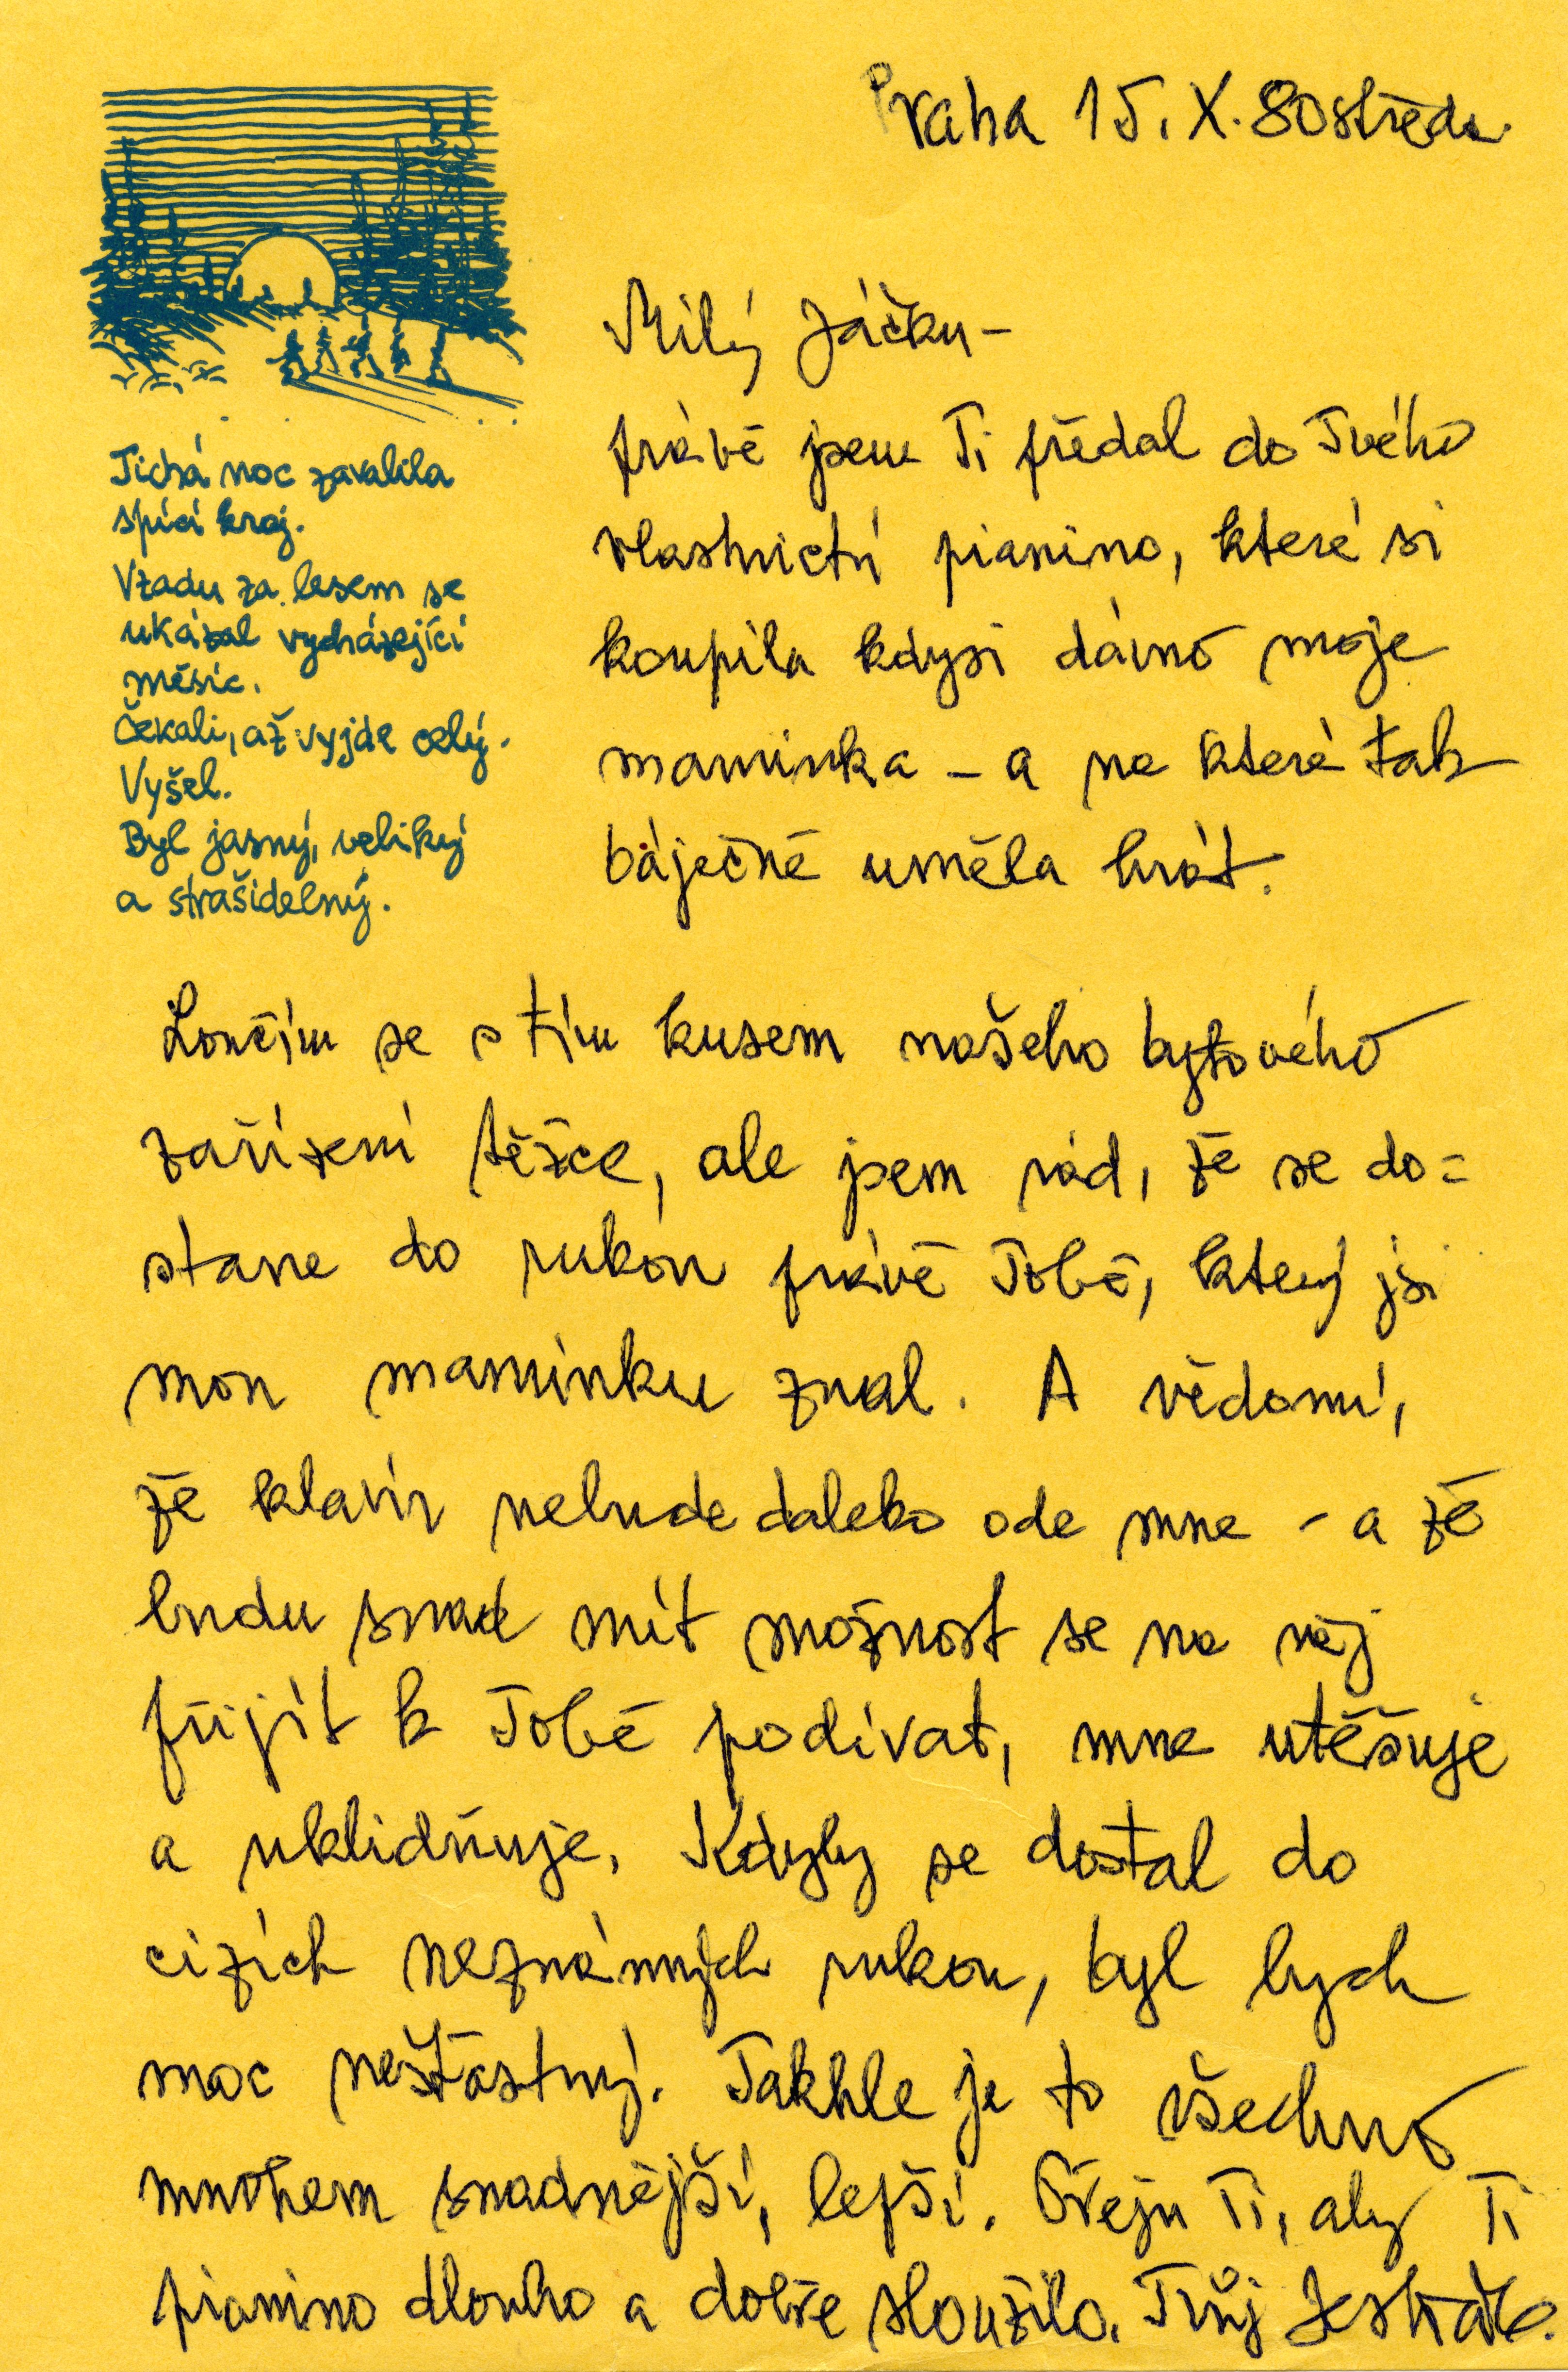 Praha 15. X. 80 středa.
Tichá noc zavalila
spící kraj.
Vzadu za lesem se
ukázal vycházející
měsíc.
Čekali, až vyjde celý.
Vyšel.
Byl jasný, veliký
a strašidelný.
Milý Jáčku –
právě jsem Ti předal do Tvého
vlastnictví pianino, které si
koupila kdysi dávno moje
maminka – a na které tak
báječně uměla hrát.
Loučím se s tím kusem našeho bytového
zařízení těžce, ale jsem rád, že se do=
stane do rukou právě Tobě, který jsi
mou maminku znal. A vědomí,
že klavír nebude daleko ode mne – a že
budu snad mít možnost se na něj
přijít k Tobě podívat, mne utěšuje
a uklidňuje. Kdyby se dostal do
cizích neznámých rukou, byl bych
moc nešťastný. Takhle je to všechno
mnohem snadnější, lepší. Přeju Ti, aby Ti
pianino dlouho a dobře sloužilo. Tvůj Jestřáb.